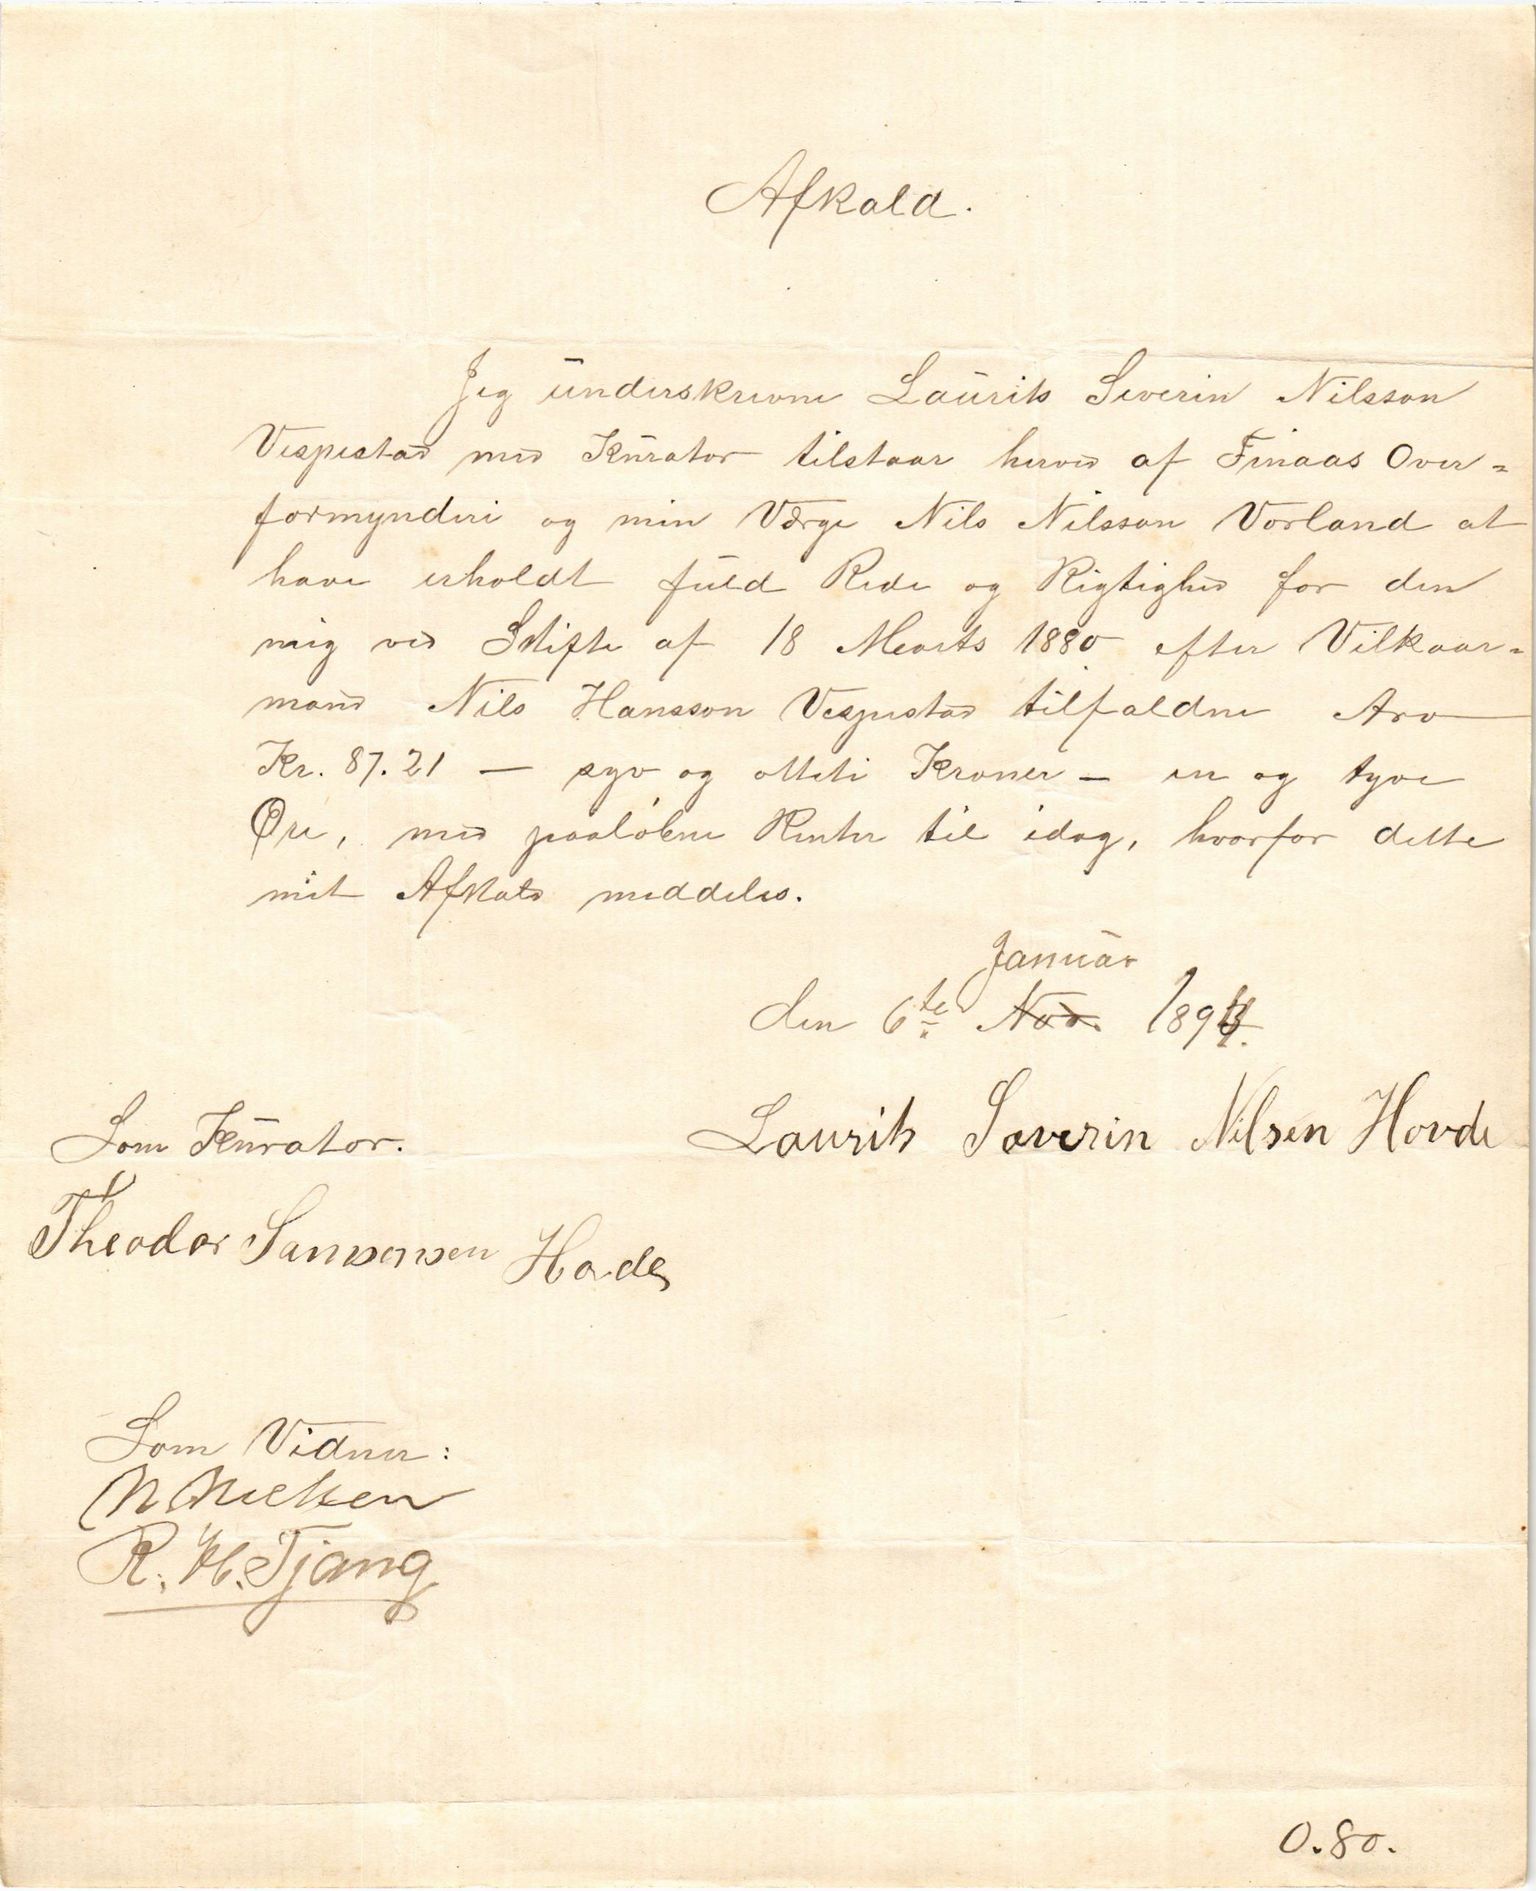 Afkald.
Jeg underskrevne Laurits Severin Nilsson
Vespestad med Kurator tilstaar herved af Finaas Over=
formynderi og min Værge Nils Nilsson Vorland at
have erholdt fuld Rede og Rigtighed for den
mig ved Skifte af 18 Marts 1880 efter Vilkaar=
mand Nils Hansson Vespestad tilfaldne Arv
Kr. 87.21 — syv og otteti Kroner — en og tyve
Øre, med paaløbne Renter til idag, hvorfor dette
mit Afkald meddeles.
Januar
den 6te Nov. 1894.
Laurits Severin Nilsen Hovde
Som Kurator.
Theodor Hovde
Som Vidner:
N Nielsen
R. H. Tjong
0.80.